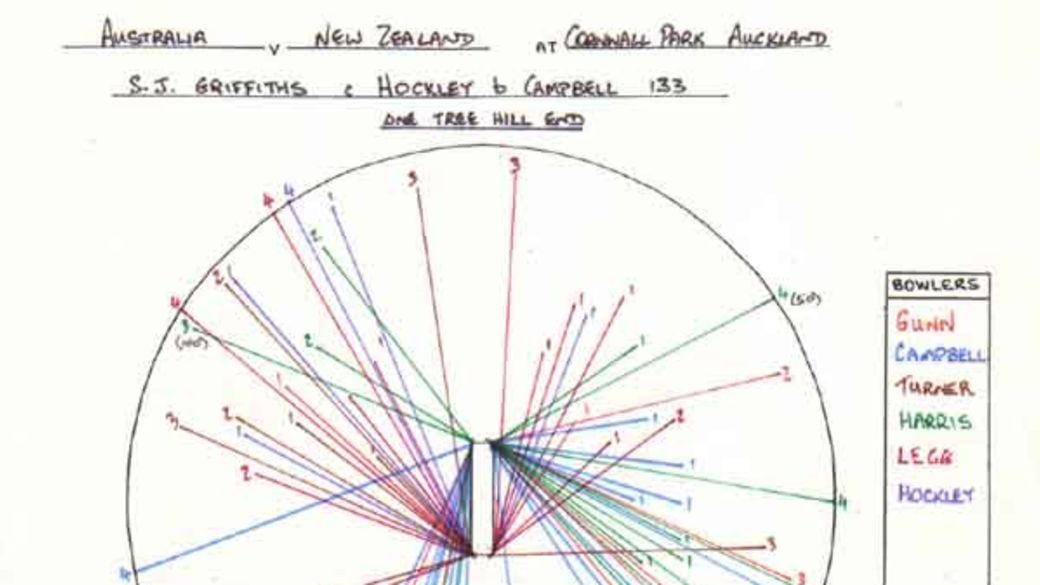 AUSTRALIA v NEW ZEALAND AT CORNWALL PARK AUCKLAND
S.J. GRIFFITHS c HOCKLEY b CAMPBELL 133
ONE TREE HILL END
3
3
4
4
1
2
2
1
4
3
(100)
2
1
1
1
1
1
4 (50)
1
2
1
3
2
1
1
2
1
2
1
1
1
2
1
1
1
4
1
1
1
3
3
4
BOWLERS
GUNN
CAMPBELL
TURNER
HARRIS
LEGG
HOCKLEY